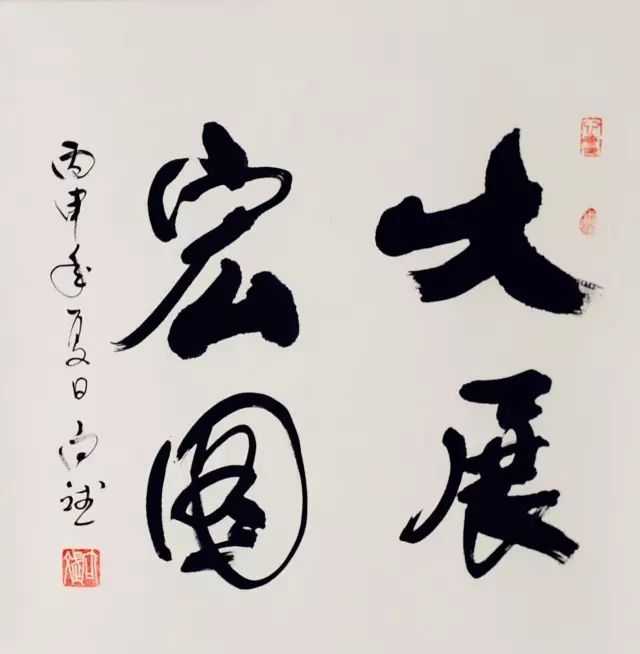 大展
宏图
丙申年夏日向斌